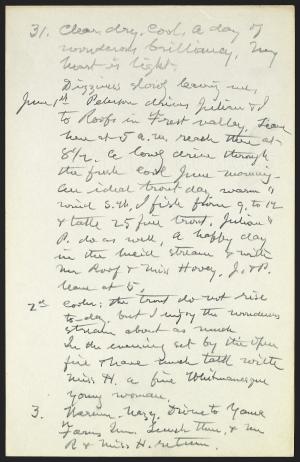 31. Clear, dry, cool, a day of
wonderous brilliancy, my
heart is light.
Dizziness slowly leaving me.
June 1st Peterson drives Julian & I
to Roofs in Frost valley. Leave
here at 5 a.m. reach there at
8 1/2. A lovely drive through
the fresh cool June morning.
An ideal trout day, warm
wind S.W. I fish from 9 to 12
& take 25 fine trout. Julian &
P. do as well, a happy day
in the maid stream & with
Mr Roof & Miss Hovey, J. & P.
leave at 5.
2nd Cooler: the trout do not rise
to-day, but I enjoy the wonderous
stream about as much
In the evening set by the open
fire & have much talk with
Miss H. a fine Whitmanesque
young woman.
3. Warm, hazy. Drive to
Farms Lunch there, & Mr
R & Miss H. return.